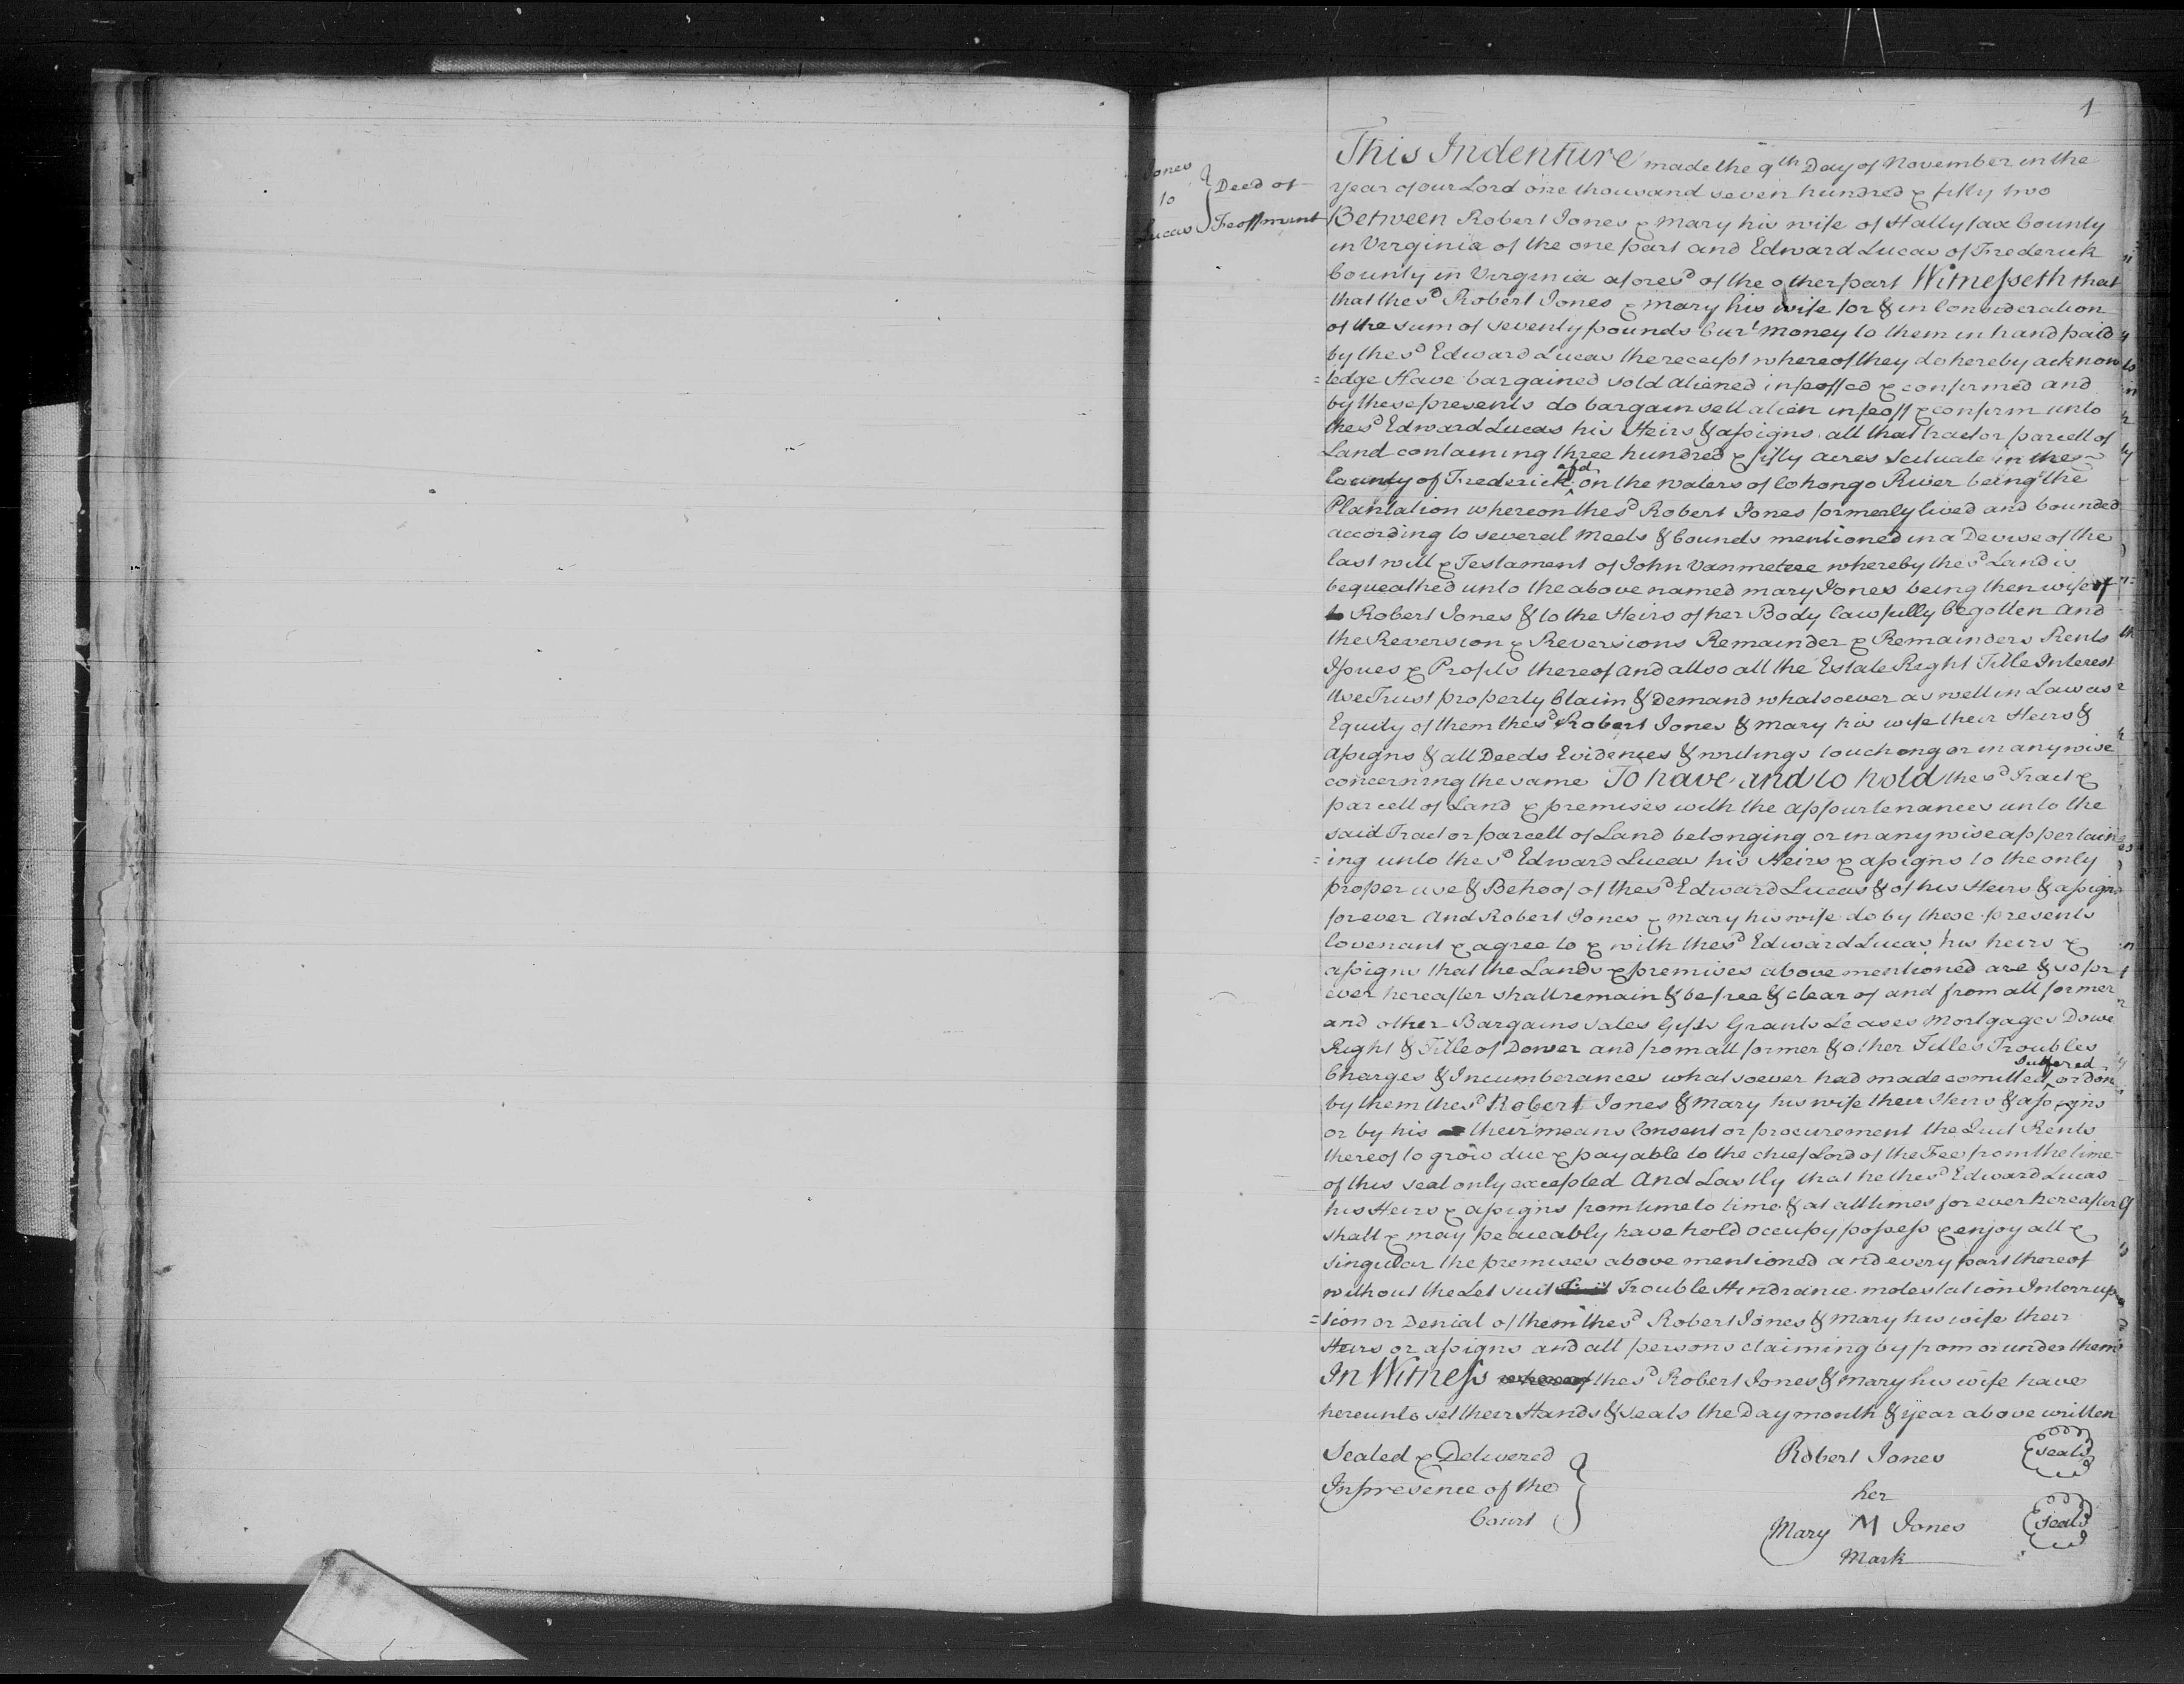 1
Jones
to
Lucas
} Deed of
Feoffment
This Indenture made the 9th Day of November in the
year of our Lord one thousand seven hundred & fifty two
Between Robert Jones & Mary his wife of Hallyfax County
in Virginia of the one part and Edward Lucas of Frederick
County in Virginia afores.d of the other part Witnesseth that
that the s.d Robert Jones & Mary his wife for & in Consideration
of the sum of seventy pounds Curt Money to them in hand paid
by the s.d Edward Lucas the receipt whereof they do hereby acknow
=ledge Have bargained sold aliened infeoffed & confirmed and
by these presents do bargain sell alien infeoff & confirm unto
the s.d Edward Lucas his Heirs & assigns all that tract or parcell of
Land containing three hundred & fifty acres Scituate in the
County of Frederick afd on the waters of Cohongo River being the
Plantation whereon the s.d Robert Jones formerly lived and bounded
according to several Meets & bounds mentioned in a Devise of the
last will & Testament of John Vanmetere whereby the s.d Land is
bequeathed unto the above named Mary Jones being then wife of
to Robert Jones & to the Heirs of her Body lawfully begotten and
the Reversion & Reversions Remainder & Remainders Rents
Issues & Profits thereof and allso all the Estate Right Title Interest
Use Trust property Claim & Demand whatsoever as well in Law as
Equity of them the s.d Robert Jones & Mary his wife their Heirs &
assigns & all Deeds Evidences & writings touchong or in any wise
concerning the same To have and to hold the s.d Tract &
parcell of Land & premises with the appurtenances unto the
said Tract or parcell of Land belonging or in any wise appertain
=ing unto the s.d Edward Lucas his Heirs & assigns to the only
proper use & Behoof of the s.d Edward Lucas & of his Heirs & assigns
forever and Robert Jones & Mary his wife do by these presents
Covenant & agree to & with the s.d Edward Lucas his heirs &
assigns that the Lands & premises above mentioned are & so for
ever hereafter shall remain & be free & clear of and from all former
and other Bargains sales Gifts Grants Leases Mortgages Dowe
Right & Title of Dower and from all former & other Titles Troubles
Charges & Incumberances whatsoever had made comitted suffered or don
by them the s.d Robert Jones & Mary his wife their Heirs & assigns
or by his or their means Consent or procurement the Quit Rents
thereof to grow due & payable to the chief Lord of the Fee from the time
of this seal only excepted And Lastly that he the s.d Edward Lucas
his Heirs & assigns from time to time & at all times for ever hereafter
shall & may peaceably have hold occupy possess & enjoy all &
singular the premises above mentioned and every part thereof
without the Let suit Trouble Hindrance molestation Interrup
=tion or Denial of them the s.d Robert Jones & Mary his wife their
Heirs or assigns and all persons claiming by from or under them
In Witness whereof the s.d Robert Jones & Mary his wife have
hereunto set their Hands & seals the Day month & year above written
Sealed & Delivered
In presence of the
Court
Robert Jones seal
her
Mary M Jones seal
Mark